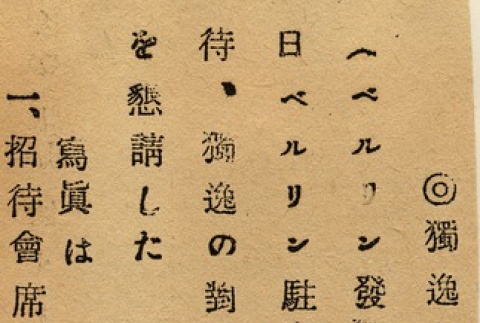 ◎獨逸
(ベルリン發
日ベルリン駐
待、獨逸の對
を懇請した
寫眞は
一、招待會席